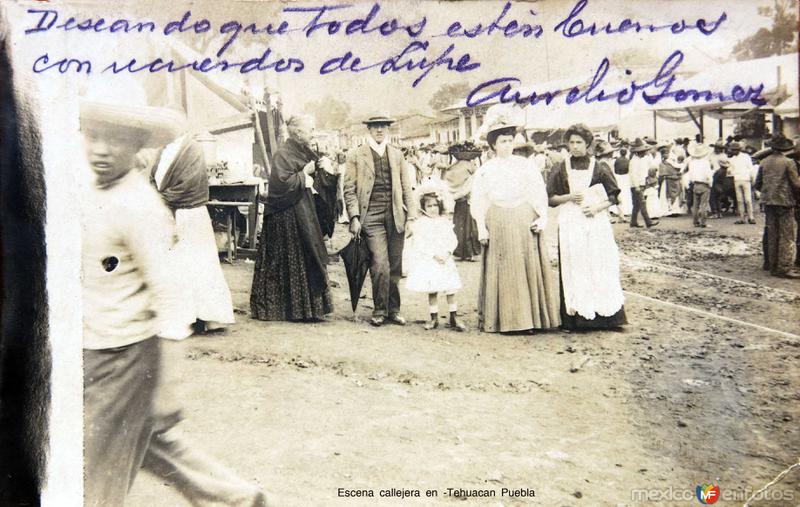 Deseando que Todos estén buenos
con recuerdos de Lupe
Aurelio Gomez
Escena callejera en -Tehuacan Puebla
mexico MF en fotos